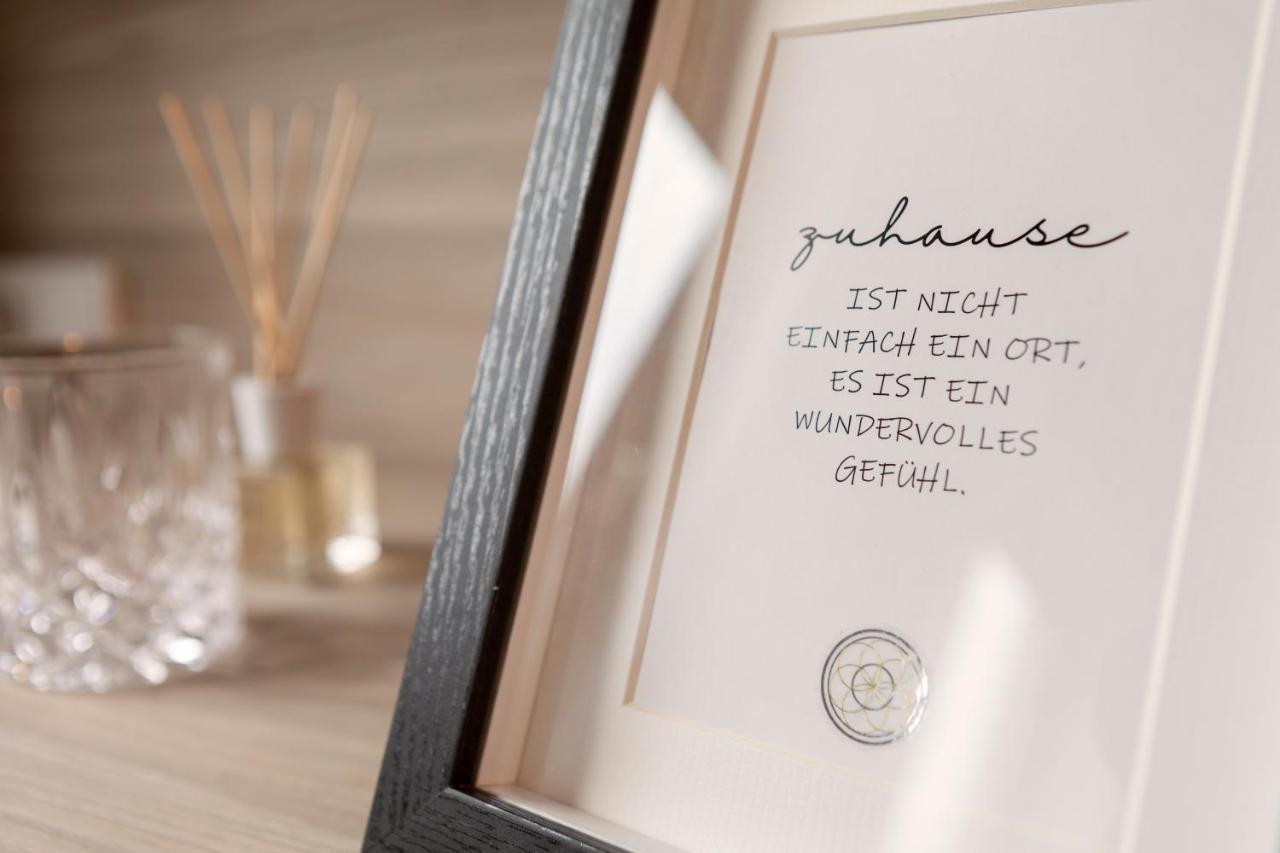 zuhause
IST NICHT
EINFACH EIN ORT,
ES IST EIN
WUNDERVOLLES
GEFÜHL.